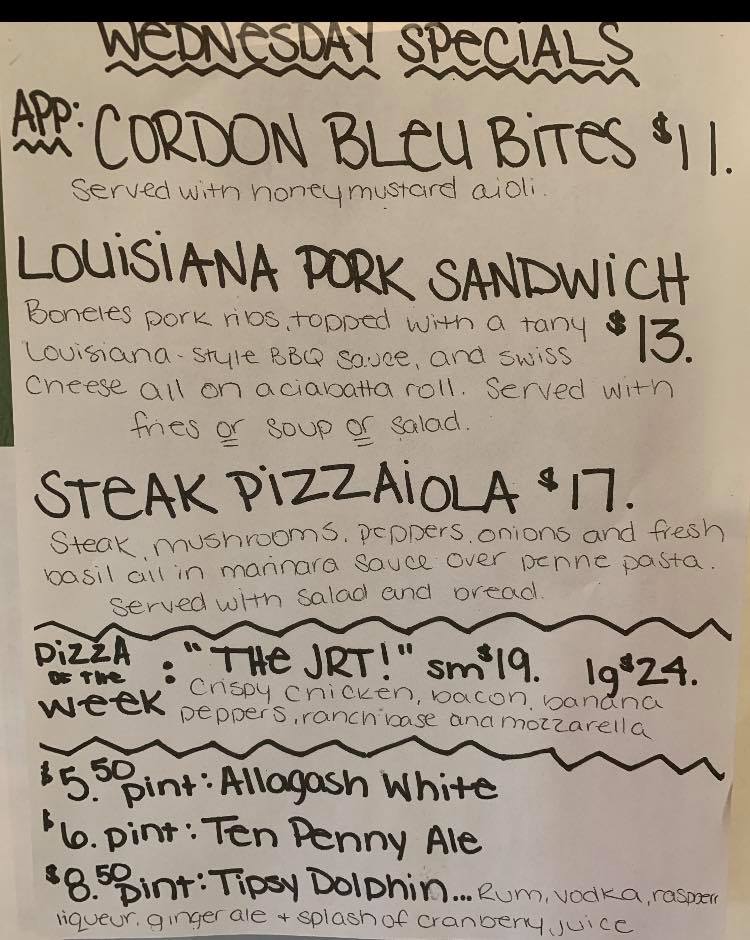 WEDNESDAY SPECIALS
APP: CORDON BLEU BITES $11.
Served with honey mustard aioli.
LOUISIANA PORK SANDWICH
Boneles pork ribs, topped with a tany $13.
Louisiana-style BBQ sauce, and swiss
cheese all on a ciabatta roll. Served with
fries or soup or salad.
STEAK PIZZAIOLA $17.
Steak, mushrooms, peppers, onions and fresh
basil all in marinara sauce over penne pasta.
Served with salad and bread.
PIZZA OF THE WEEK: "THE JRT!" sm $19. lg $24.
Crispy chicken, bacon, banana
peppers, ranch base and mozzarella
$5.50 pint: Allagash White
$6. pint: Ten Penny Ale
$8.50 pint: Tipsy Dolphin... Rum, vodka, raspberr
liqueur, ginger ale + splash of cranberry juice